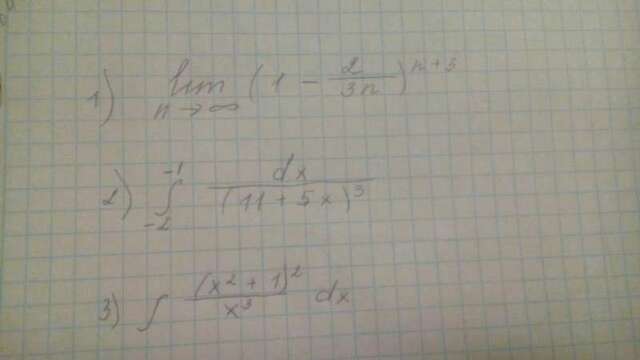 1) lim n→∞ (1 - 2/3n)^{n+3}
2) ∫_{-2}^{-1} dx/(11+5x)^3
3) ∫ (x^2+1)^2/x^3 dx